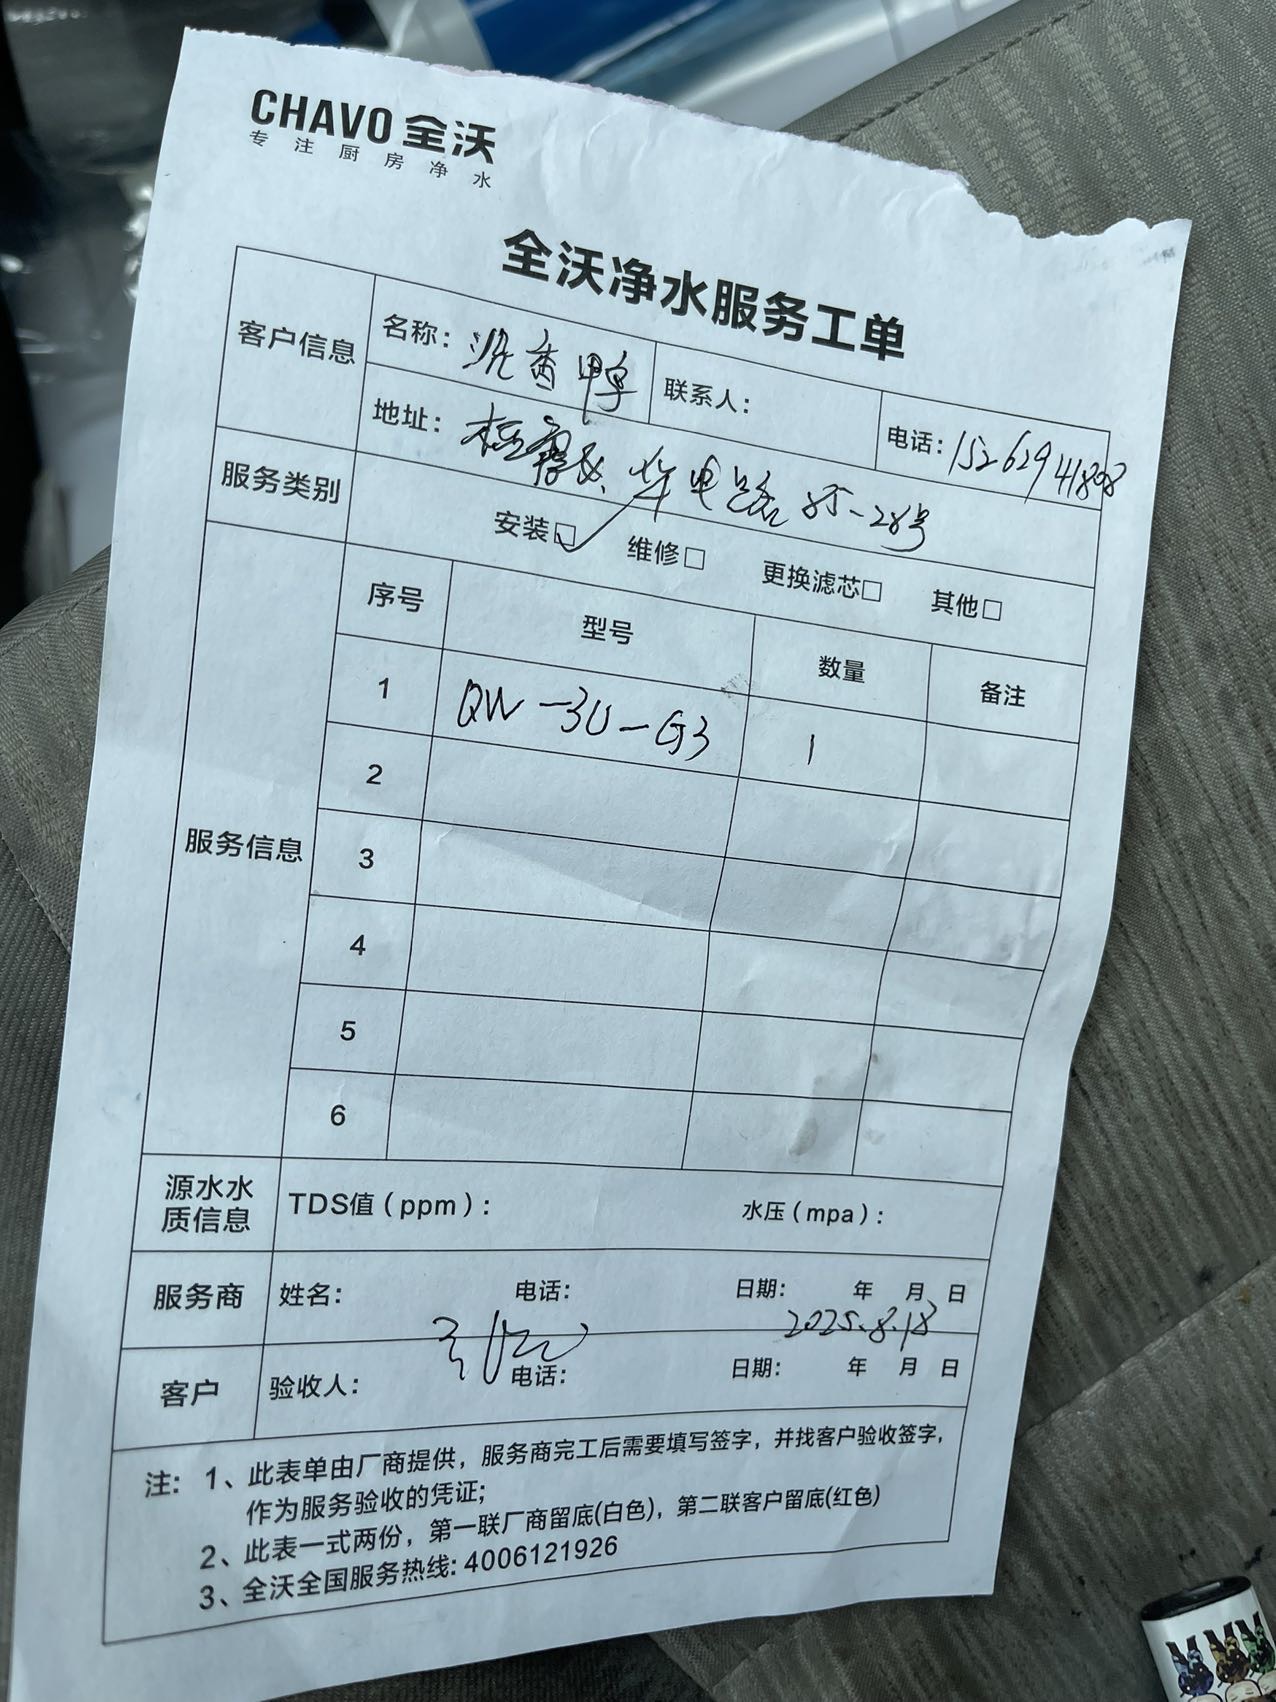 CHAVO 全沃
专注厨房净水
全沃净水服务工单
客户信息
名称: 香鸭
联系人:
电话: 15262941808
地址: 华电路85-28号
服务类别
安装☑ 维修□ 更换滤芯□ 其他□
服务信息
序号 型号 数量 备注
1 QW-3U-G3 1
2
3
4
5
6
源水水质信息
TDS值(ppm): 水压(mpa):
服务商 姓名: 电话: 日期: 年 月 日
2025.8.18
客户 验收人: 电话: 日期: 年 月 日
注: 1、此表单由厂商提供,服务商完工后需要填写签字,并找客户验收签字,
作为服务验收的凭证;
2、此表一式两份,第一联厂商留底(白色),第二联客户留底(红色)
3、全沃全国服务热线: 4006121926